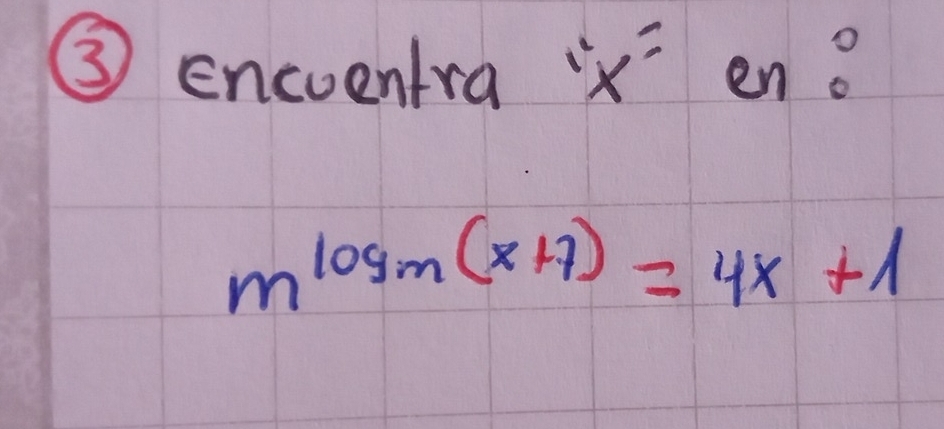 ③ Encuentra "x" en :
m^log_m (x+7) = 4x + 1